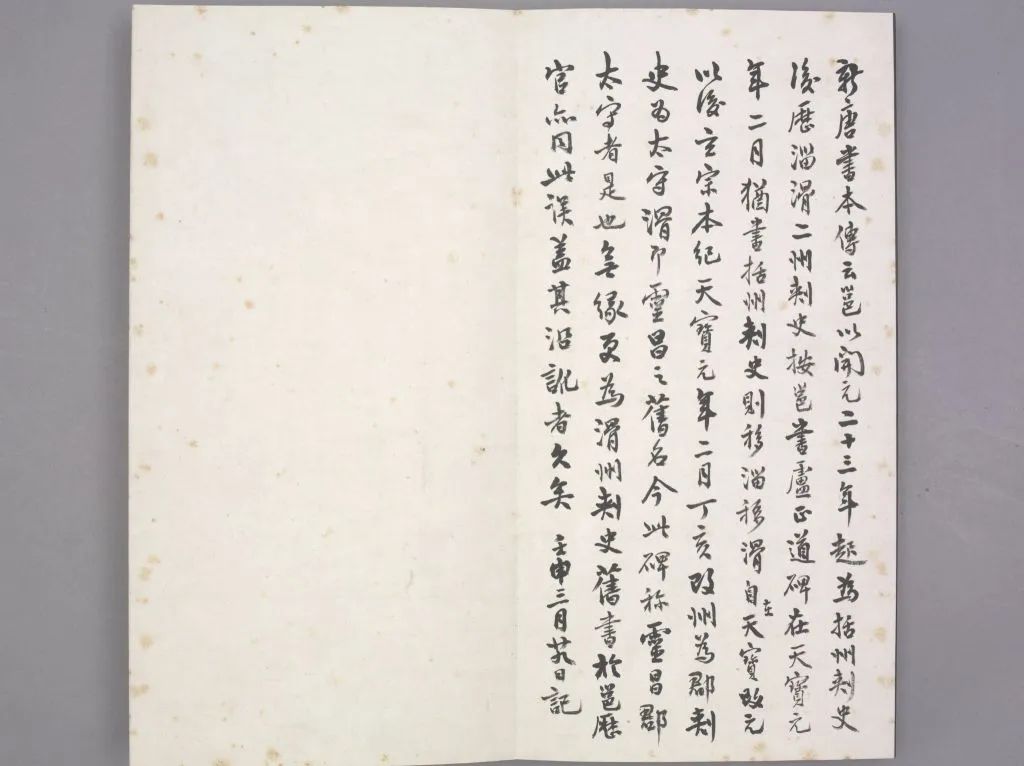 新唐書本傳云邕以開元二十三年起為括州刺史
後歷淄滑二州刺史按邕書盧正道碑在天寶元
年二月猶書括州刺史則移淄移滑自在天寶改元
以後玄宗本紀天寶元年二月丁亥改州為郡刺
史為太守滑即靈昌之舊名今此碑称靈昌郡
太守者是也無緣更為滑州刺史舊書於邕歷
官亦同此誤蓋其沿訛者久矣 壬申三月廿九日記